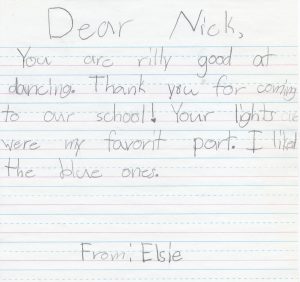 Dear Nick,
You are rilly good at
dancing. Thank you for coming
to our school! Your lights
were my favorit part. I liked
the blue ones.
From: Elsie